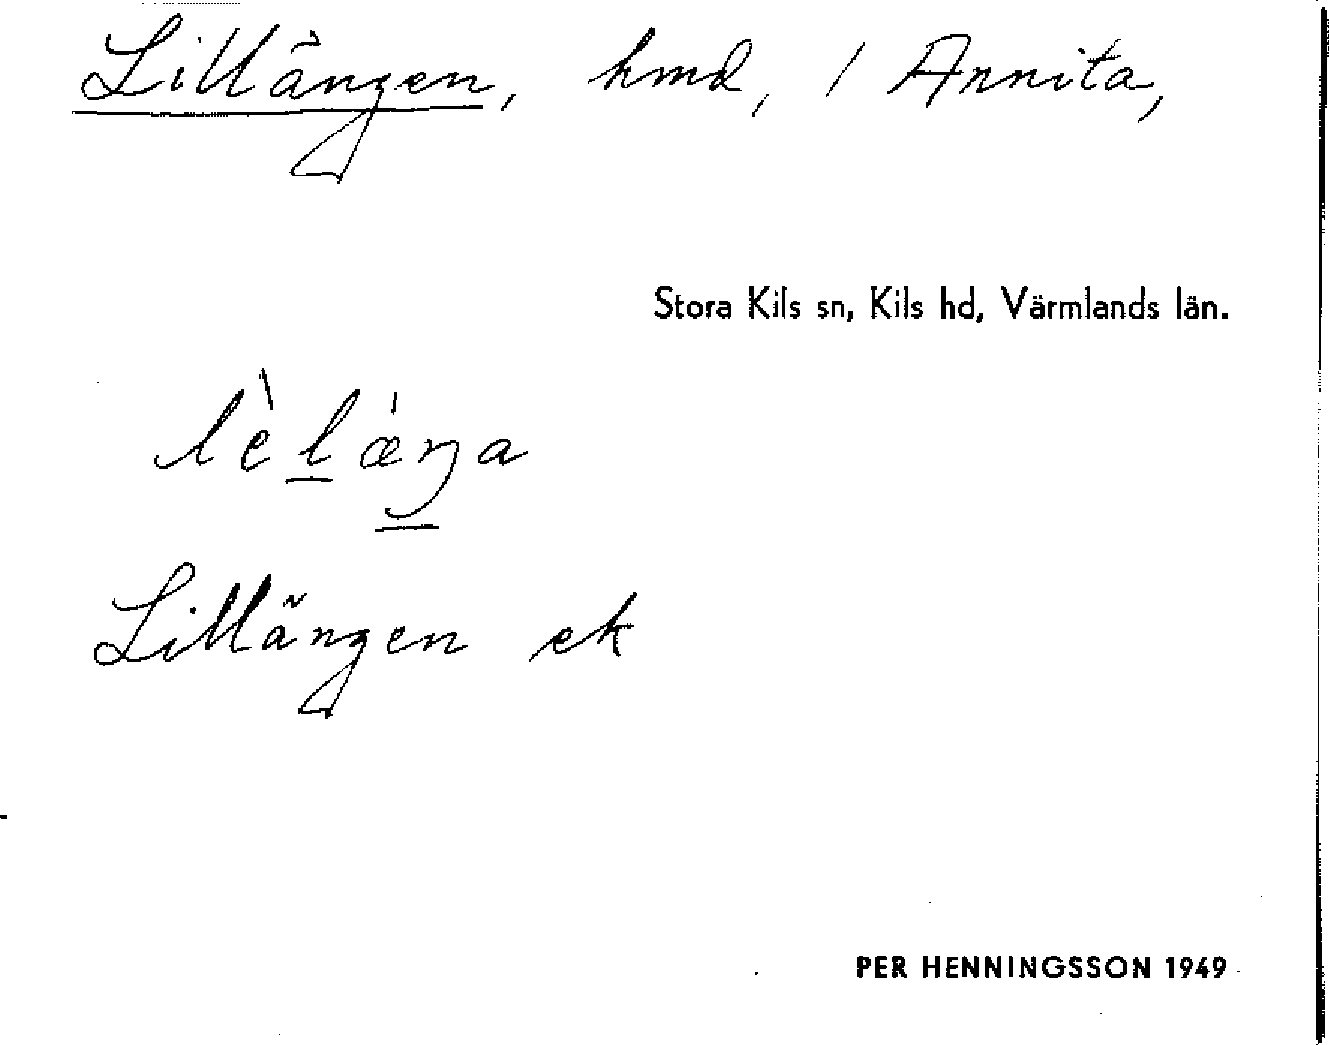 Lillängen, hmd, / Annita,
Stora Kils sn, Kils hd, Värmlands län.
lèlæ̀ŋa
Lillängen ek
PER HENNINGSSON 1949